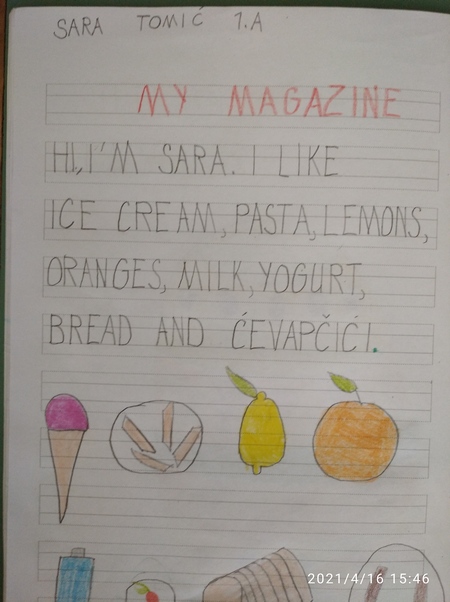 SARA TOMIĆ 1.A
MY MAGAZINE
HI, I'M SARA. I LIKE
ICE CREAM, PASTA, LEMONS,
ORANGES, MILK, YOGURT,
BREAD AND ĆEVAPČIĆI.
2021/4/16 15:46